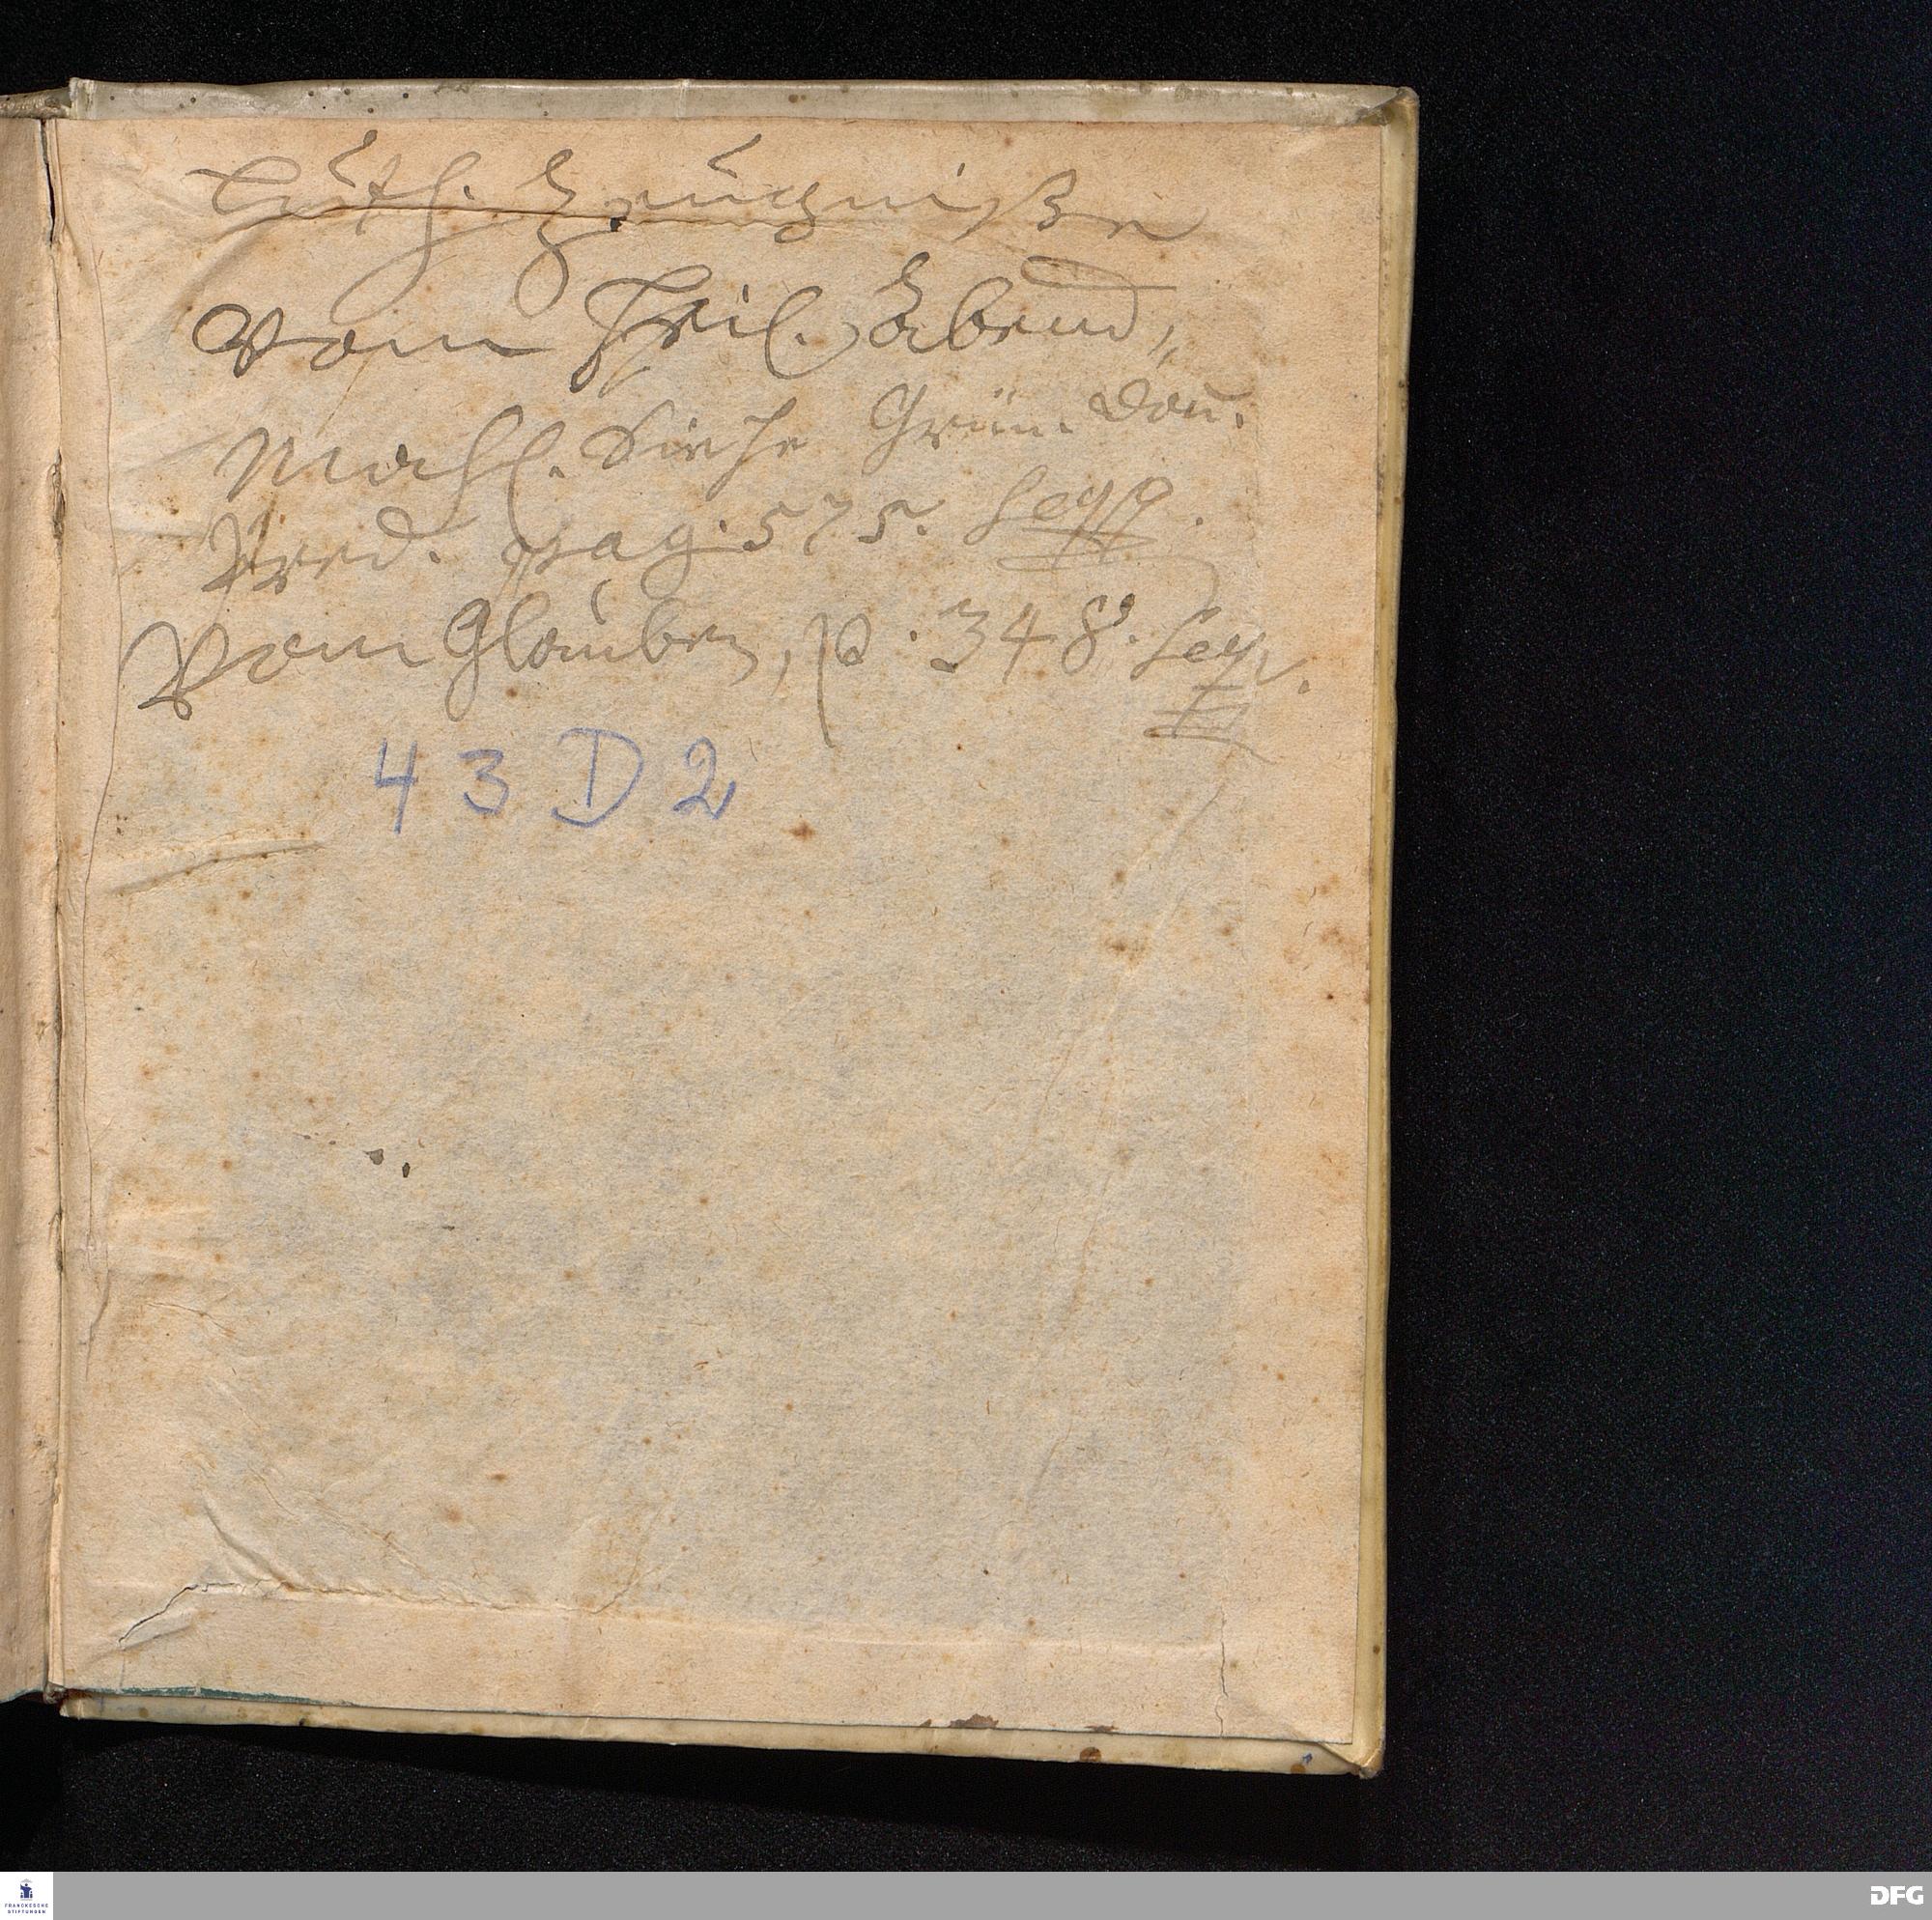 Luth. Zeugniße
vom Heil. Abend„
Mahl. Siehe Grün. Don.
Pred. pag. 575. seqq.
Vom Glauben, p. 348. seq.
43 D 2
FRANCKESCHE
STIFTUNGEN
DFG